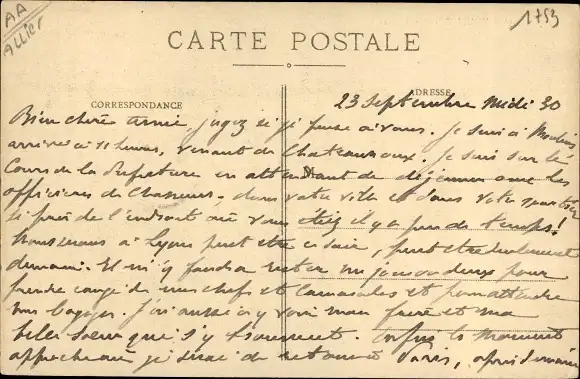 AA
ALLIER
1753
CARTE POSTALE
CORRESPONDANCE
ADRESSE
23 Septembre Midi 30
Bien chère amie, jugez si je pense à vous. Je suis à Moulins
arrivé à 11 heures, venant de Chateauroux. Je suis sur le
Cours de la Préfecture en attendant de déjeuner avec les
officiers de Chasseurs, dans votre ville et dans votre quartier
si près de l'endroit où vous étiez il y a peu de temps!
à Lyon peut être ce soir, peut être seulement
demain. Il m'y faudra rester un jour ou deux pour
prendre congé de mes chefs et camarades et pour attendre
mes bagages. J'ai aussi à y voir mon frère et ma
belle soeur qui s'y trouvent. Enfin le moment
approche où je serai de retour à Paris, après demain